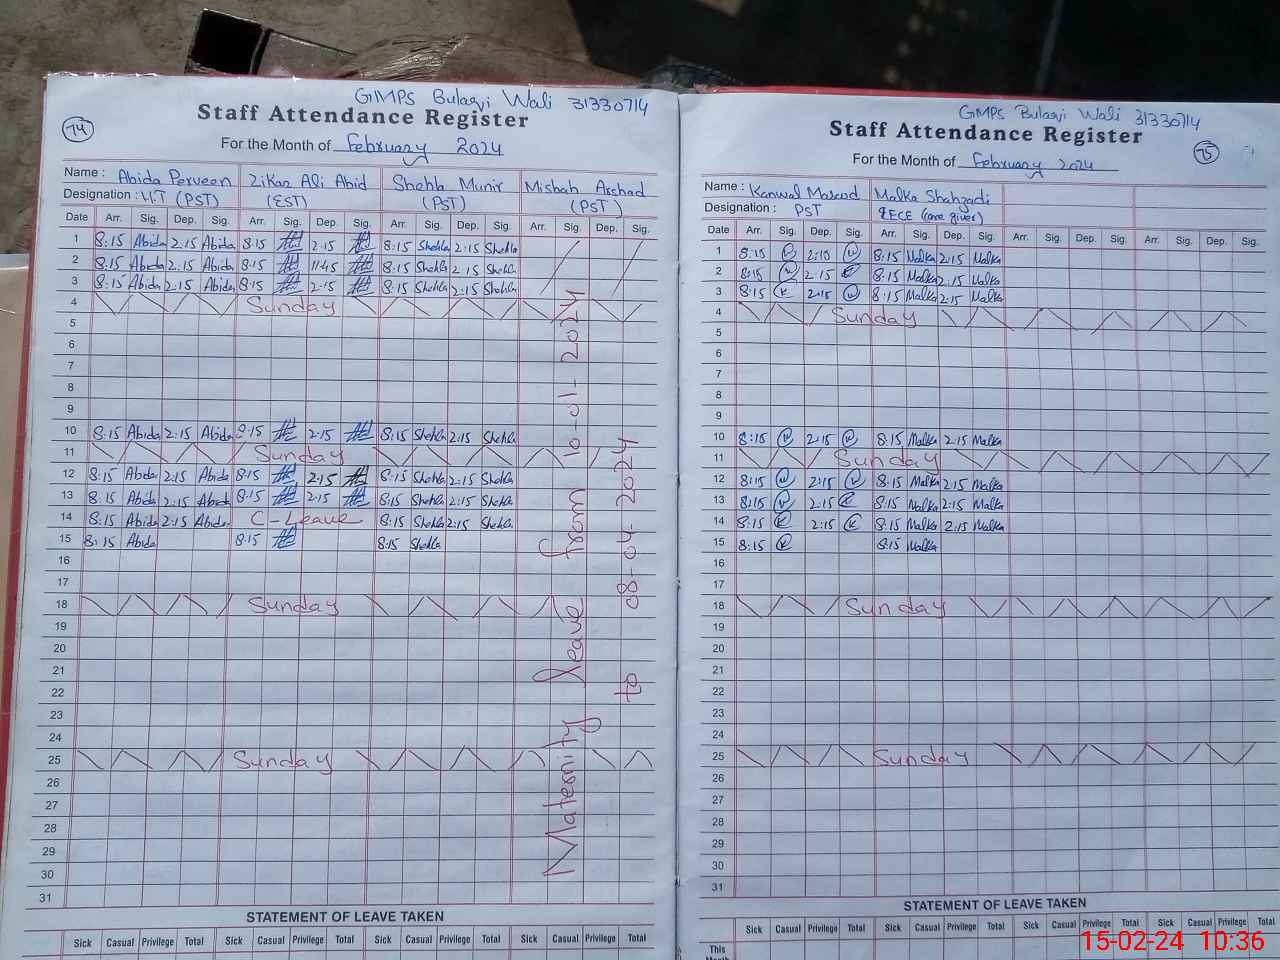 GMPS Bulaqi Wali 31330714
Staff Attendance Register
74
For the Month of February 2024
Name : Abida Perveen Zikar Ali Abid Shehla Munir Misbah Arshad
Designation : H.T (PST) (EST) (PST) (PST)
Date Arr. Sig. Dep. Sig. Arr. Sig. Dep. Sig. Arr. Sig. Dep. Sig. Arr. Sig. Dep. Sig.
1 8:15 Abida 2:15 Abida 8:15 2:15 8:15 Shehla 2:15 Shehla
2 8:15 Abida 2:15 Abida 8:15 11:45 8:15 Shehla 2:15 Shehla
3 8:15 Abida 2:15 Abida 8:15 2:15 8:15 Shehla 2:15 Shehla
4 Sunday
5
6
7
8
9
10 8:15 Abida 2:15 Abida 8:15 2:15 8:15 Shehla 2:15 Shehla
11 Sunday
12 8:15 Abida 2:15 Abida 8:15 2:15 8:15 Shehla 2:15 Shehla
13 8:15 Abida 2:15 Abida 8:15 2:15 8:15 Shehla 2:15 Shehla
14 8:15 Abida 2:15 Abida C-Leave 8:15 Shehla 2:15 Shehla
15 8:15 Abida 8:15 8:15 Shehla
16
17
18 Sunday
19
20
21
22
23
24
25 Sunday
26
27
28
29
30
31
Maternity leave from 10-01-2024
to 08-04-2024
STATEMENT OF LEAVE TAKEN
Sick Casual Privilege Total Sick Casual Privilege Total Sick Casual Privilege Total Sick Casual Privilege Total
GMPS Bulaqi Wali 31330714
Staff Attendance Register
75
For the Month of February 2024
Name : Kanwal Masood Malka Shahzadi
Designation : PST ECE (care giver)
Date Arr. Sig. Dep. Sig. Arr. Sig. Dep. Sig. Arr. Sig. Dep. Sig. Arr. Sig. Dep. Sig.
1 8:15 2:10 8:15 Malka 2:15 Malka
2 8:15 2:15 8:15 Malka 2:15 Malka
3 8:15 2:15 8:15 Malka 2:15 Malka
4 Sunday
5
6
7
8
9
10 8:15 2:15 8:15 Malka 2:15 Malka
11 Sunday
12 8:15 2:15 8:15 Malka 2:15 Malka
13 8:15 2:15 8:15 Malka 2:15 Malka
14 8:15 2:15 8:15 Malka 2:15 Malka
15 8:15 8:15 Malka
16
17
18 Sunday
19
20
21
22
23
24
25 Sunday
26
27
28
29
30
31
STATEMENT OF LEAVE TAKEN
Sick Casual Privilege Total Sick Casual Privilege Total Sick Casual Privilege Total Sick Casual Privilege Total
This
15-02-24 10:36